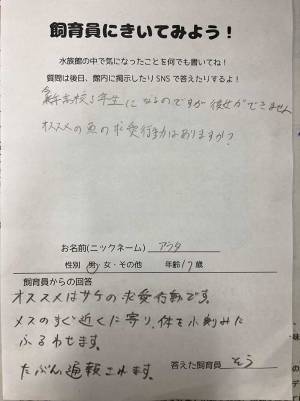 飼育員にきいてみよう！
水族館の中で気になったことを何でも書いてね！
質問は後日、館内に掲示したりSNSで答えたりするよ！
高校3年生になるのですが彼女ができません
オススメの魚の求愛行動はありますか？
お名前(ニックネーム) アラタ
性別 男・女・その他 年齢 17歳
飼育員からの回答
オススメはサケの求愛行動です。
メスのすぐ近くに寄り、体を小刻みに
ふるわせます。
たぶん通報されます。
答えた飼育員 そう